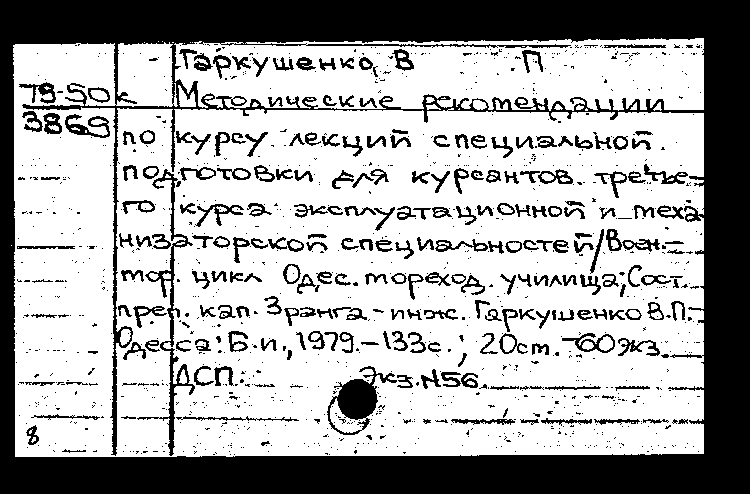 Гаркушенко, В П
79-50к Методические рекомендации
3869 по курсу лекций специальной
подготовки для курсантов третье-
го курса эксплуатационной и меха
низаторской специальностей/Воен.-
мор. цикл Одес. мореход. училища; Сост.
преп. кап. 3 ранга - инж. Гаркушенко В.П.-
Одесса: Б.и., 1979.-133с.; 20см. -60экз.
ДСП. Экз. №56.
8